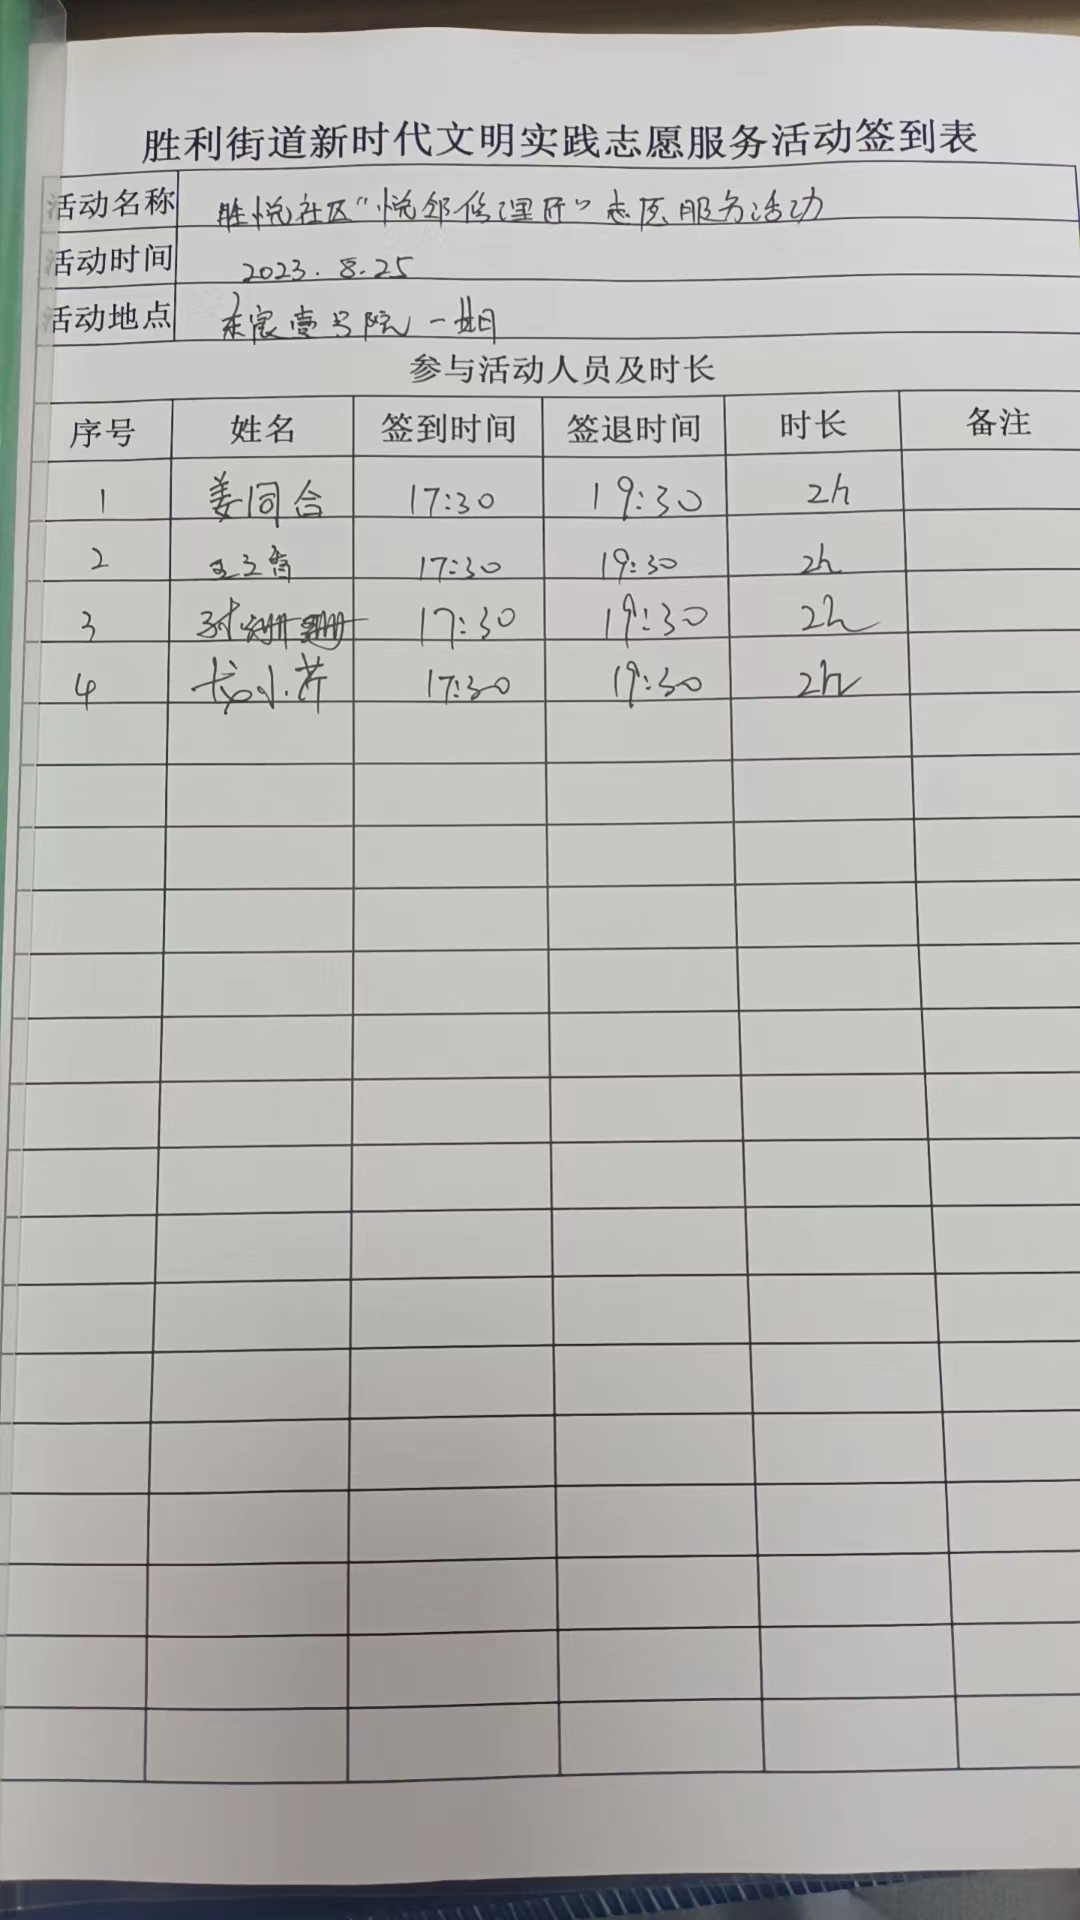 胜利街道新时代文明实践志愿服务活动签到表
活动名称 胜悦社区“悦邻修理匠”志愿服务活动
活动时间 2023.8.25
活动地点 东宸壹号院一期
参与活动人员及时长
序号 姓名 签到时间 签退时间 时长 备注
1 姜同合 17:30 19:30 2h
2 17:30 19:30 2h
3 17:30 19:30 2h
4 17:30 19:30 2h